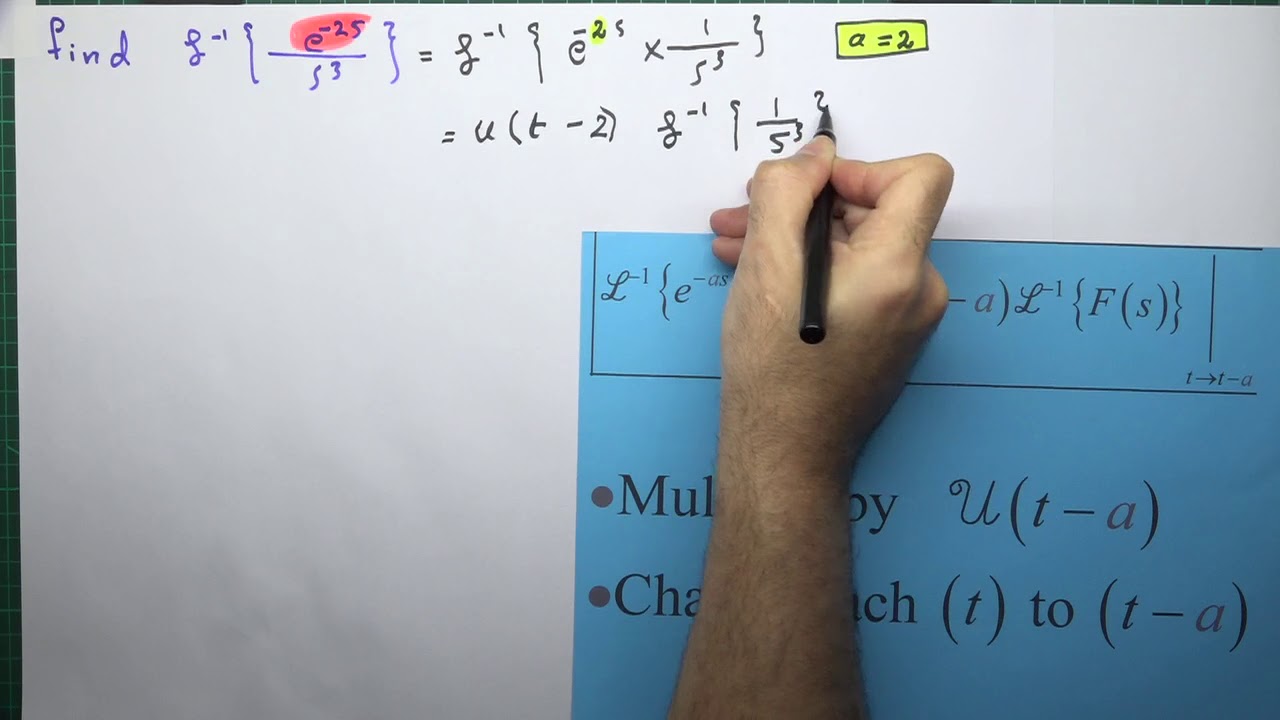 find ℒ⁻¹ { e⁻²ˢ / s³ } = ℒ⁻¹ { e⁻²ˢ × 1/s³ } a = 2
= u(t - 2) ℒ⁻¹ { 1/s³
ℒ⁻¹{e⁻ᵃˢ - a)ℒ⁻¹{F(s)}|
t→t-a
•Mul by 𝒰(t - a)
•Cha ch (t) to (t - a)